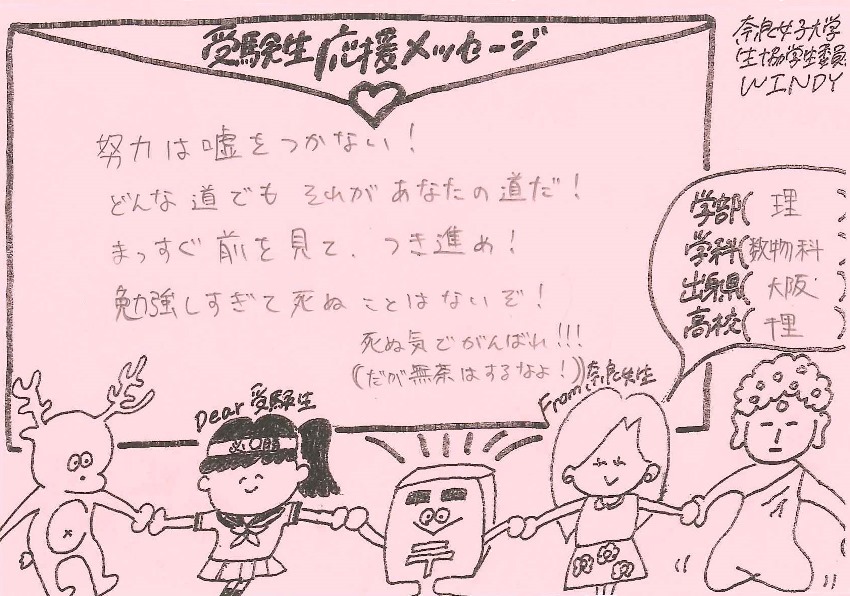 受験生応援メッセージ
奈良女子大学
生協学生委員
WINDY
努力は嘘をつかない！
どんな道でも それがあなたの道だ！
まっすぐ前を見て、つき進め！
勉強しすぎて死ぬことはないぞ！
死ぬ気でがんばれ!!!
(だが無茶はするなよ！)
学部( 理 )
学科(数物科)
出身県( 大阪 )
高校( 千里 )
Dear 受験生
必勝合格
From 奈良女生
〒